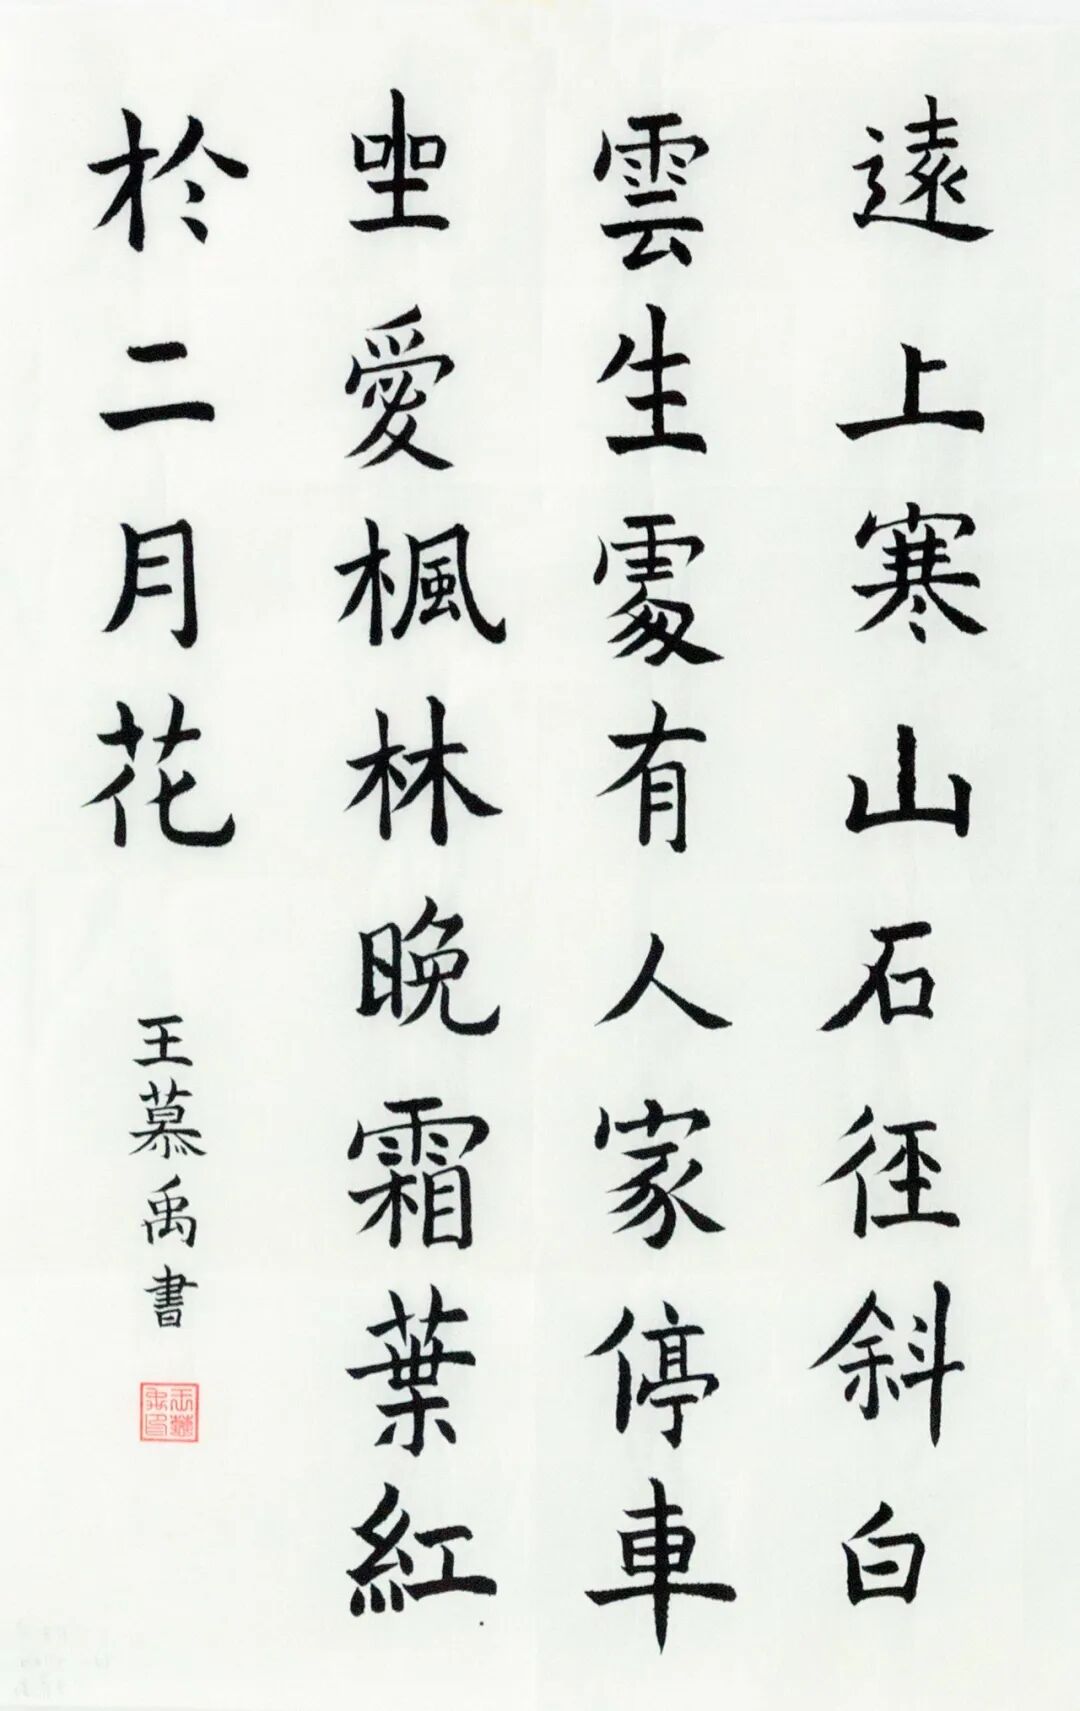 遠上寒山石徑斜白
雲生處有人家停車
坐愛楓林晚霜葉紅
於二月花
王慕禹書